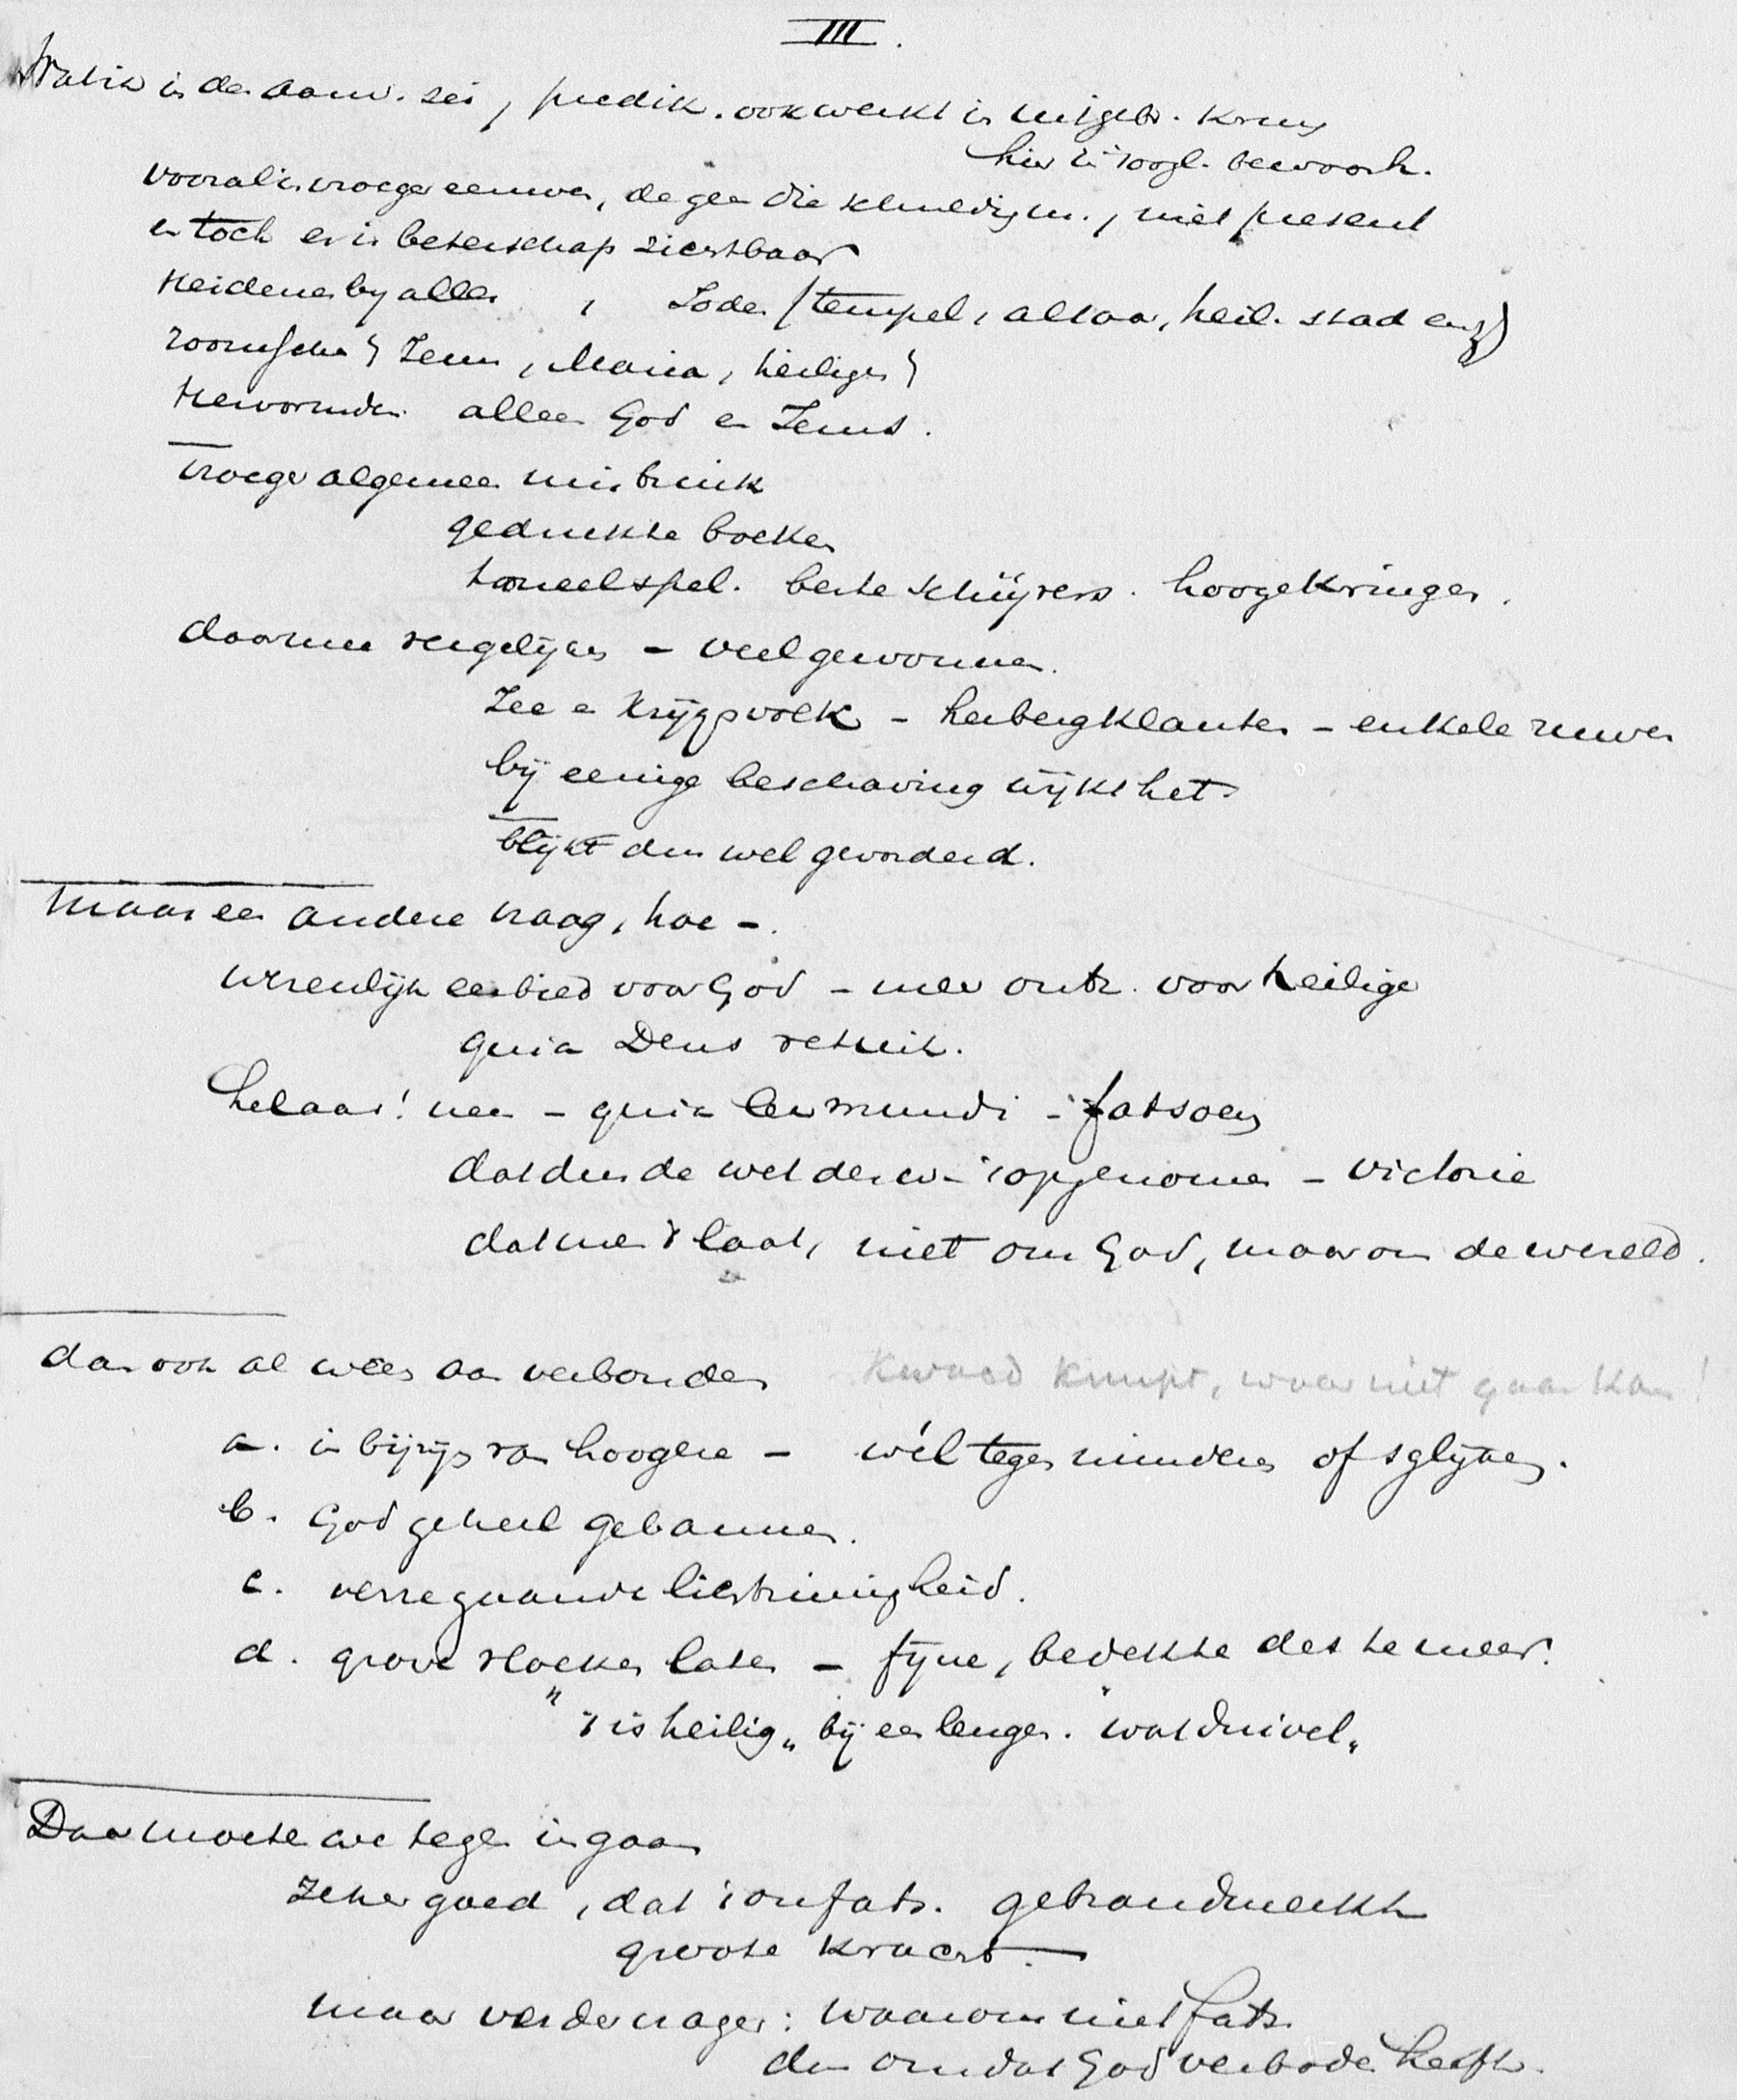 III.
in de aanw. zei, predik. ook werkt in uitgebr. kring
hier in 't oogl. bewoosh.
vooral in vroeger eeuwen, degen die schuldig zn., niet present
en toch er is beterschap zichtbaar
Heidenen by alles, Joden (tempel, altaar, heil. stad enz)
roomschen Jezus, Maria, heiligen
Hervormden alleen God en Jezus.
vroeger algemeen misbruik
gedrukte boeken
tooneelspel. beste schrijvers. hooge kringen.
daarmee vergelijken – veel gewonnen.
Zee en krijgsvolk – herbergklanten – enkele ruwen
bij eenige beschaving wijkt het
blijkt dus wel gevorderd.
Maar een andere vraag, hoe –.
wezenlijk eerbied voor God – meer ontz. voor heilige
quia Deus vetuit.
helaas! neen – quia lex mundi – fatsoen
dat dus de wet der w. 't opgenomen – victorie
dat men 't laat, niet om God, maar om de wereld.
dan ook al wees aan verbonden kwaad kruipt, waar niet gaan kan!
a. in bijzijn van hoogere – wél tegen minderen of 's glijken.
b. God geheel gebannen.
c. verregaande lichtzinnigheid.
d. grove vloeken laten – fijne, bedekte des te meer.
"'t is heilig" bij een leugen. "wat duivel"
Daar moeten we tegen in gaan
Zeker goed, dat 't onfats. gebrandmerkt
groote kracht.
maar verder vragen: waarom niet fats.
dus omdat God verboden heeft.